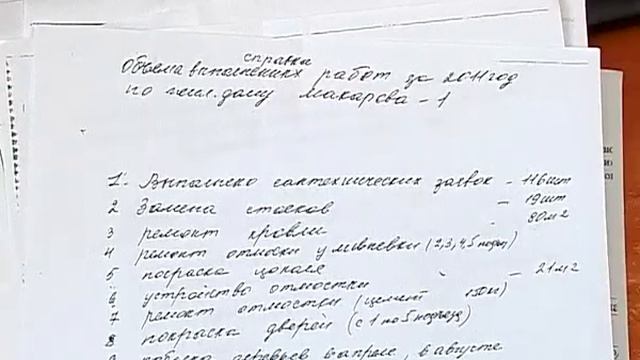 справки
Объема выполненных работ за 2011 год
по жил. дому Макарова - 1
1. Выполнено сантехнических заявок - 116 шт
2 Замена стояков - 19 шт
3 ремонт кровли - 80 м2
4 ремонт отмостки у ливневки (2,3,4,5 подъезд)
5 покраска цоколя
6 устройство отмостки - 21 м2
7 ремонт отмостки (цемент 150 кг)
8 покраска дверей (с 1 по 5 подъезд)
9 побелка деревьев в апреле, в августе